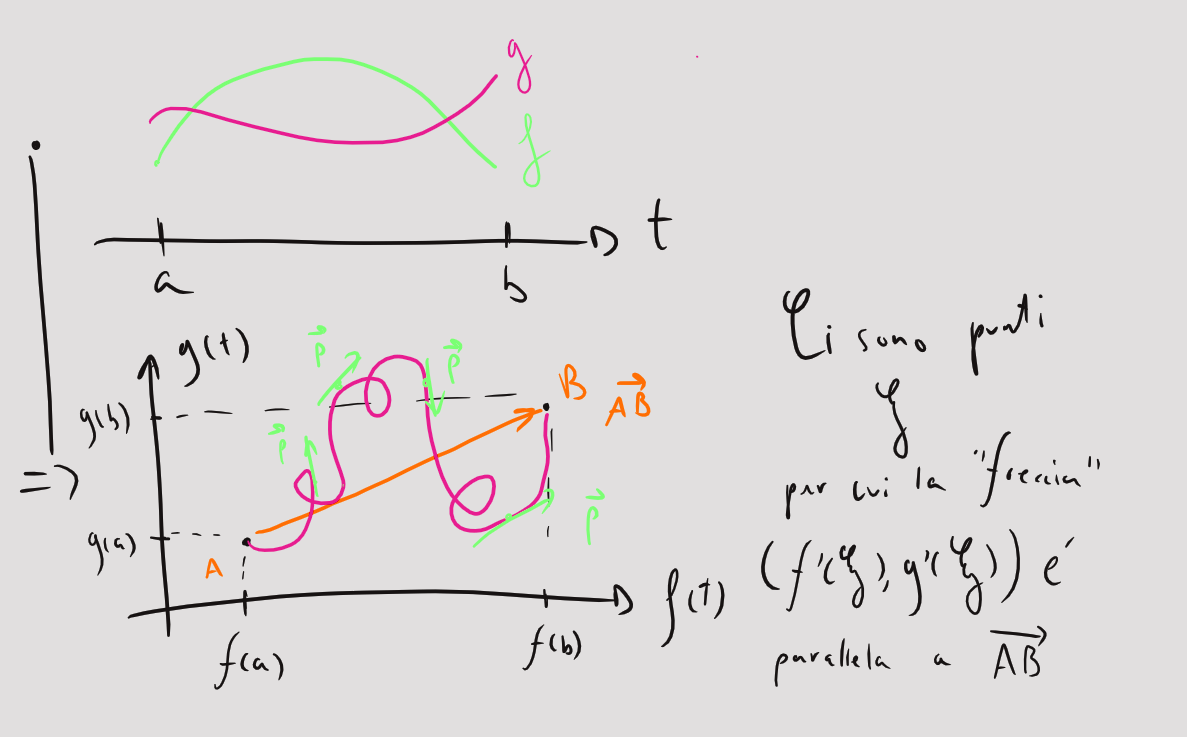 g
f
t
a
b
=>
g(t)
g(b)
g(a)
p
p
p
p
A
B
AB
f(t)
f(a)
f(b)
Ci sono punti
ξ
per cui la "freccia"
(f'(ξ), g'(ξ)) e'
parallela a AB